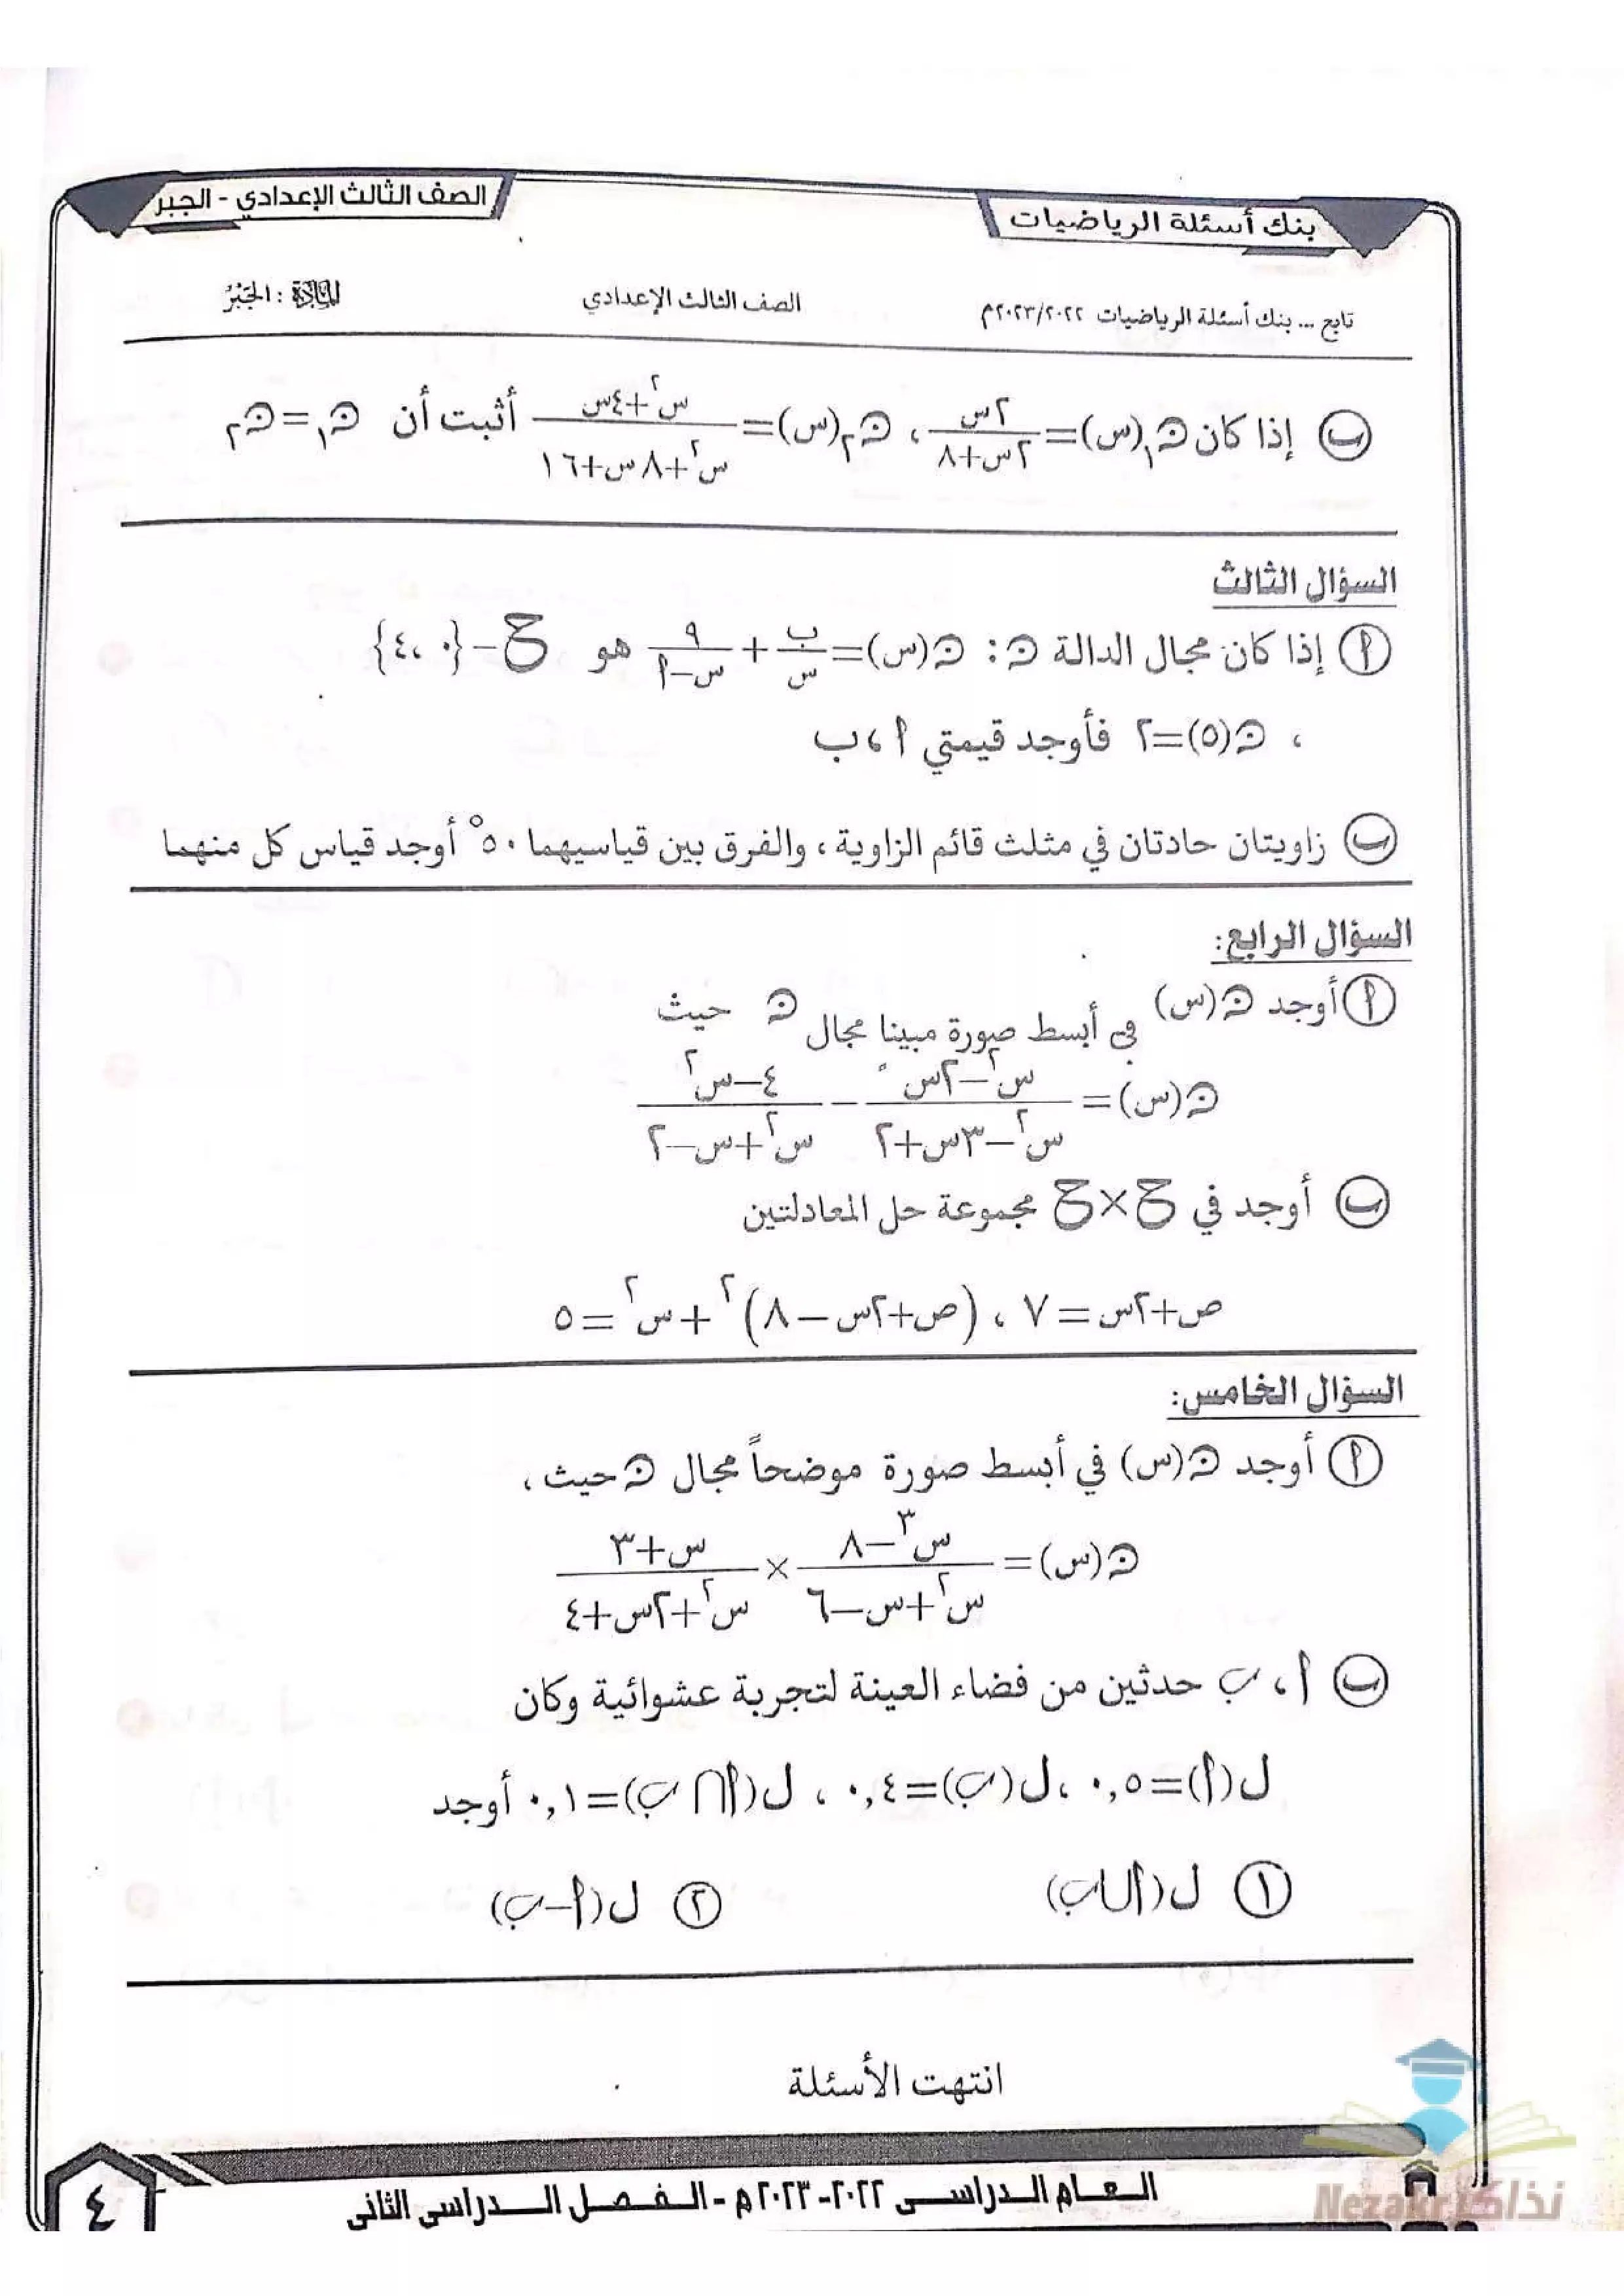 بنك أسئلة الرياضيات
الصف الثالث الإعدادي - الجبر
تابع ... بنك أسئلة الرياضيات ٢٠٢٣/٢٠٢٢م الصف الثالث الإعدادي المادة : الجبر
(ب) إذا كان ن₁(س) = ٢س / (٢س+٨) ، ن₂(س) = (س²+٤س) / (س²+٨س+١٦) أثبت أن ن₁ = ن₂
السؤال الثالث
(أ) إذا كان مجال الدالة ن : ن(س) = ب/س + ٩/(س-أ) هو ح - {٠ ، ٤}
، ن(٥) = ٢ فأوجد قيمتي أ ، ب
(ب) زاويتان حادتان في مثلث قائم الزاوية ، والفرق بين قياسيهما ٥٠° أوجد قياس كل منهما
السؤال الرابع:
(أ) أوجد ن(س) في أبسط صورة مبينا مجال ن حيث
ن(س) = (س²-٢س) / (س²-٣س+٢) - (٤-س²) / (س²+س-٢)
(ب) أوجد في ح×ح مجموعة حل المعادلتين
ص+٢س = ٧ ، (ص+٢س-٨)² + س² = ٥
السؤال الخامس:
(أ) أوجد ن(س) في أبسط صورة موضحاً مجال ن حيث ،
ن(س) = (س³-٨) / (س²+س-٦) × (س+٣) / (س²+٢س+٤)
(ب) أ ، ب حدثين من فضاء العينة لتجربة عشوائية وكان
ل(أ) = ٠,٥ ، ل(ب) = ٠,٤ ، ل(أ∩ب) = ٠,١ أوجد
(١) ل(أ∪ب) (٢) ل(أ-ب)
انتهت الأسئلة
العام الدراسى ٢٠٢٢-٢٠٢٣م - الفصل الدراسى الثانى
٤
Nezakr نذاكر